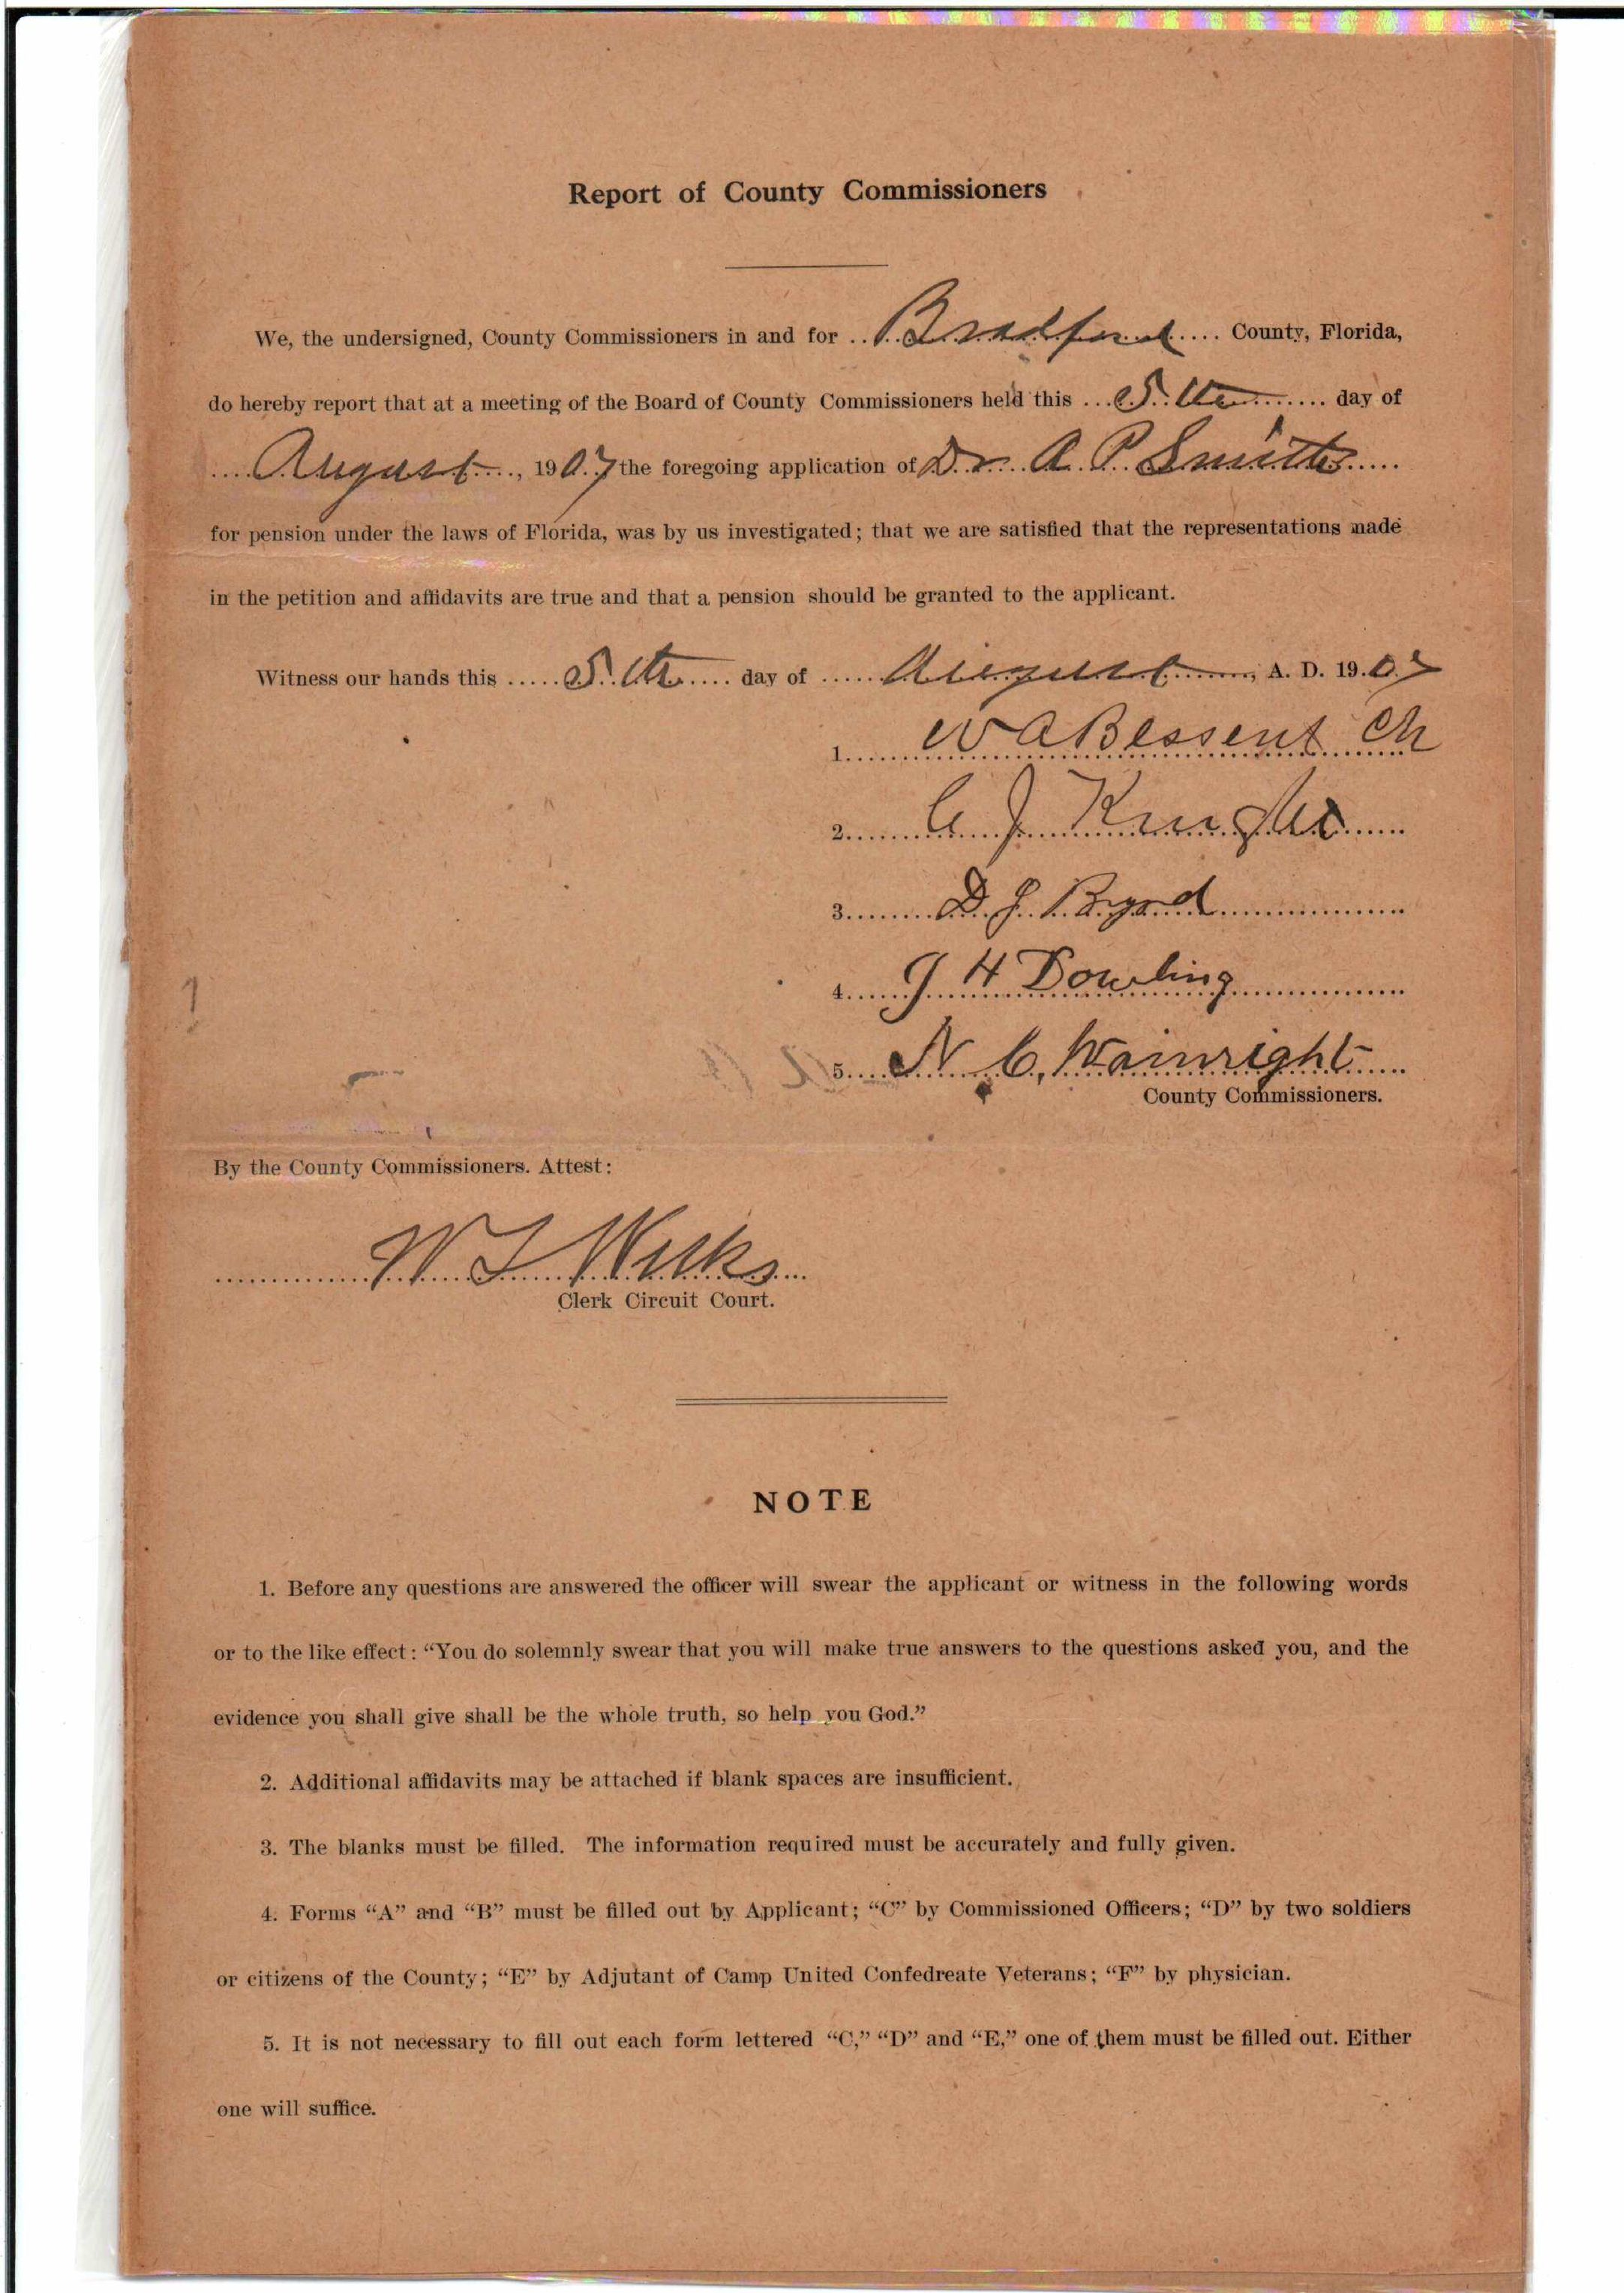 Report of County Commissioners
We, the undersigned, County Commissioners in and for Bradford County, Florida,
do hereby report that at a meeting of the Board of County Commissioners held this 5th day of
August, 1907 the foregoing application of Dr. A. P. Smith
for pension under the laws of Florida, was by us investigated; that we are satisfied that the representations made
in the petition and affidavits are true and that a pension should be granted to the applicant.
Witness our hands this 5th day of August, A. D. 1907
1. W A Bessent Ch
2. J Knight
3. D. J. Byrd
4. J H Dowling
5. N. C. Wainright
County Commissioners.
By the County Commissioners. Attest:
W Weeks
Clerk Circuit Court.
NOTE
1. Before any questions are answered the officer will swear the applicant or witness in the following words
or to the like effect: “You do solemnly swear that you will make true answers to the questions asked you, and the
evidence you shall give shall be the whole truth, so help you God.”
2. Additional affidavits may be attached if blank spaces are insufficient.
3. The blanks must be filled. The information required must be accurately and fully given.
4. Forms “A” and “B” must be filled out by Applicant; “C” by Commissioned Officers; “D” by two soldiers
or citizens of the County; “E” by Adjutant of Camp United Confedreate Veterans; “F” by physician.
5. It is not necessary to fill out each form lettered “C,” “D” and “E,” one of them must be filled out. Either
one will suffice.